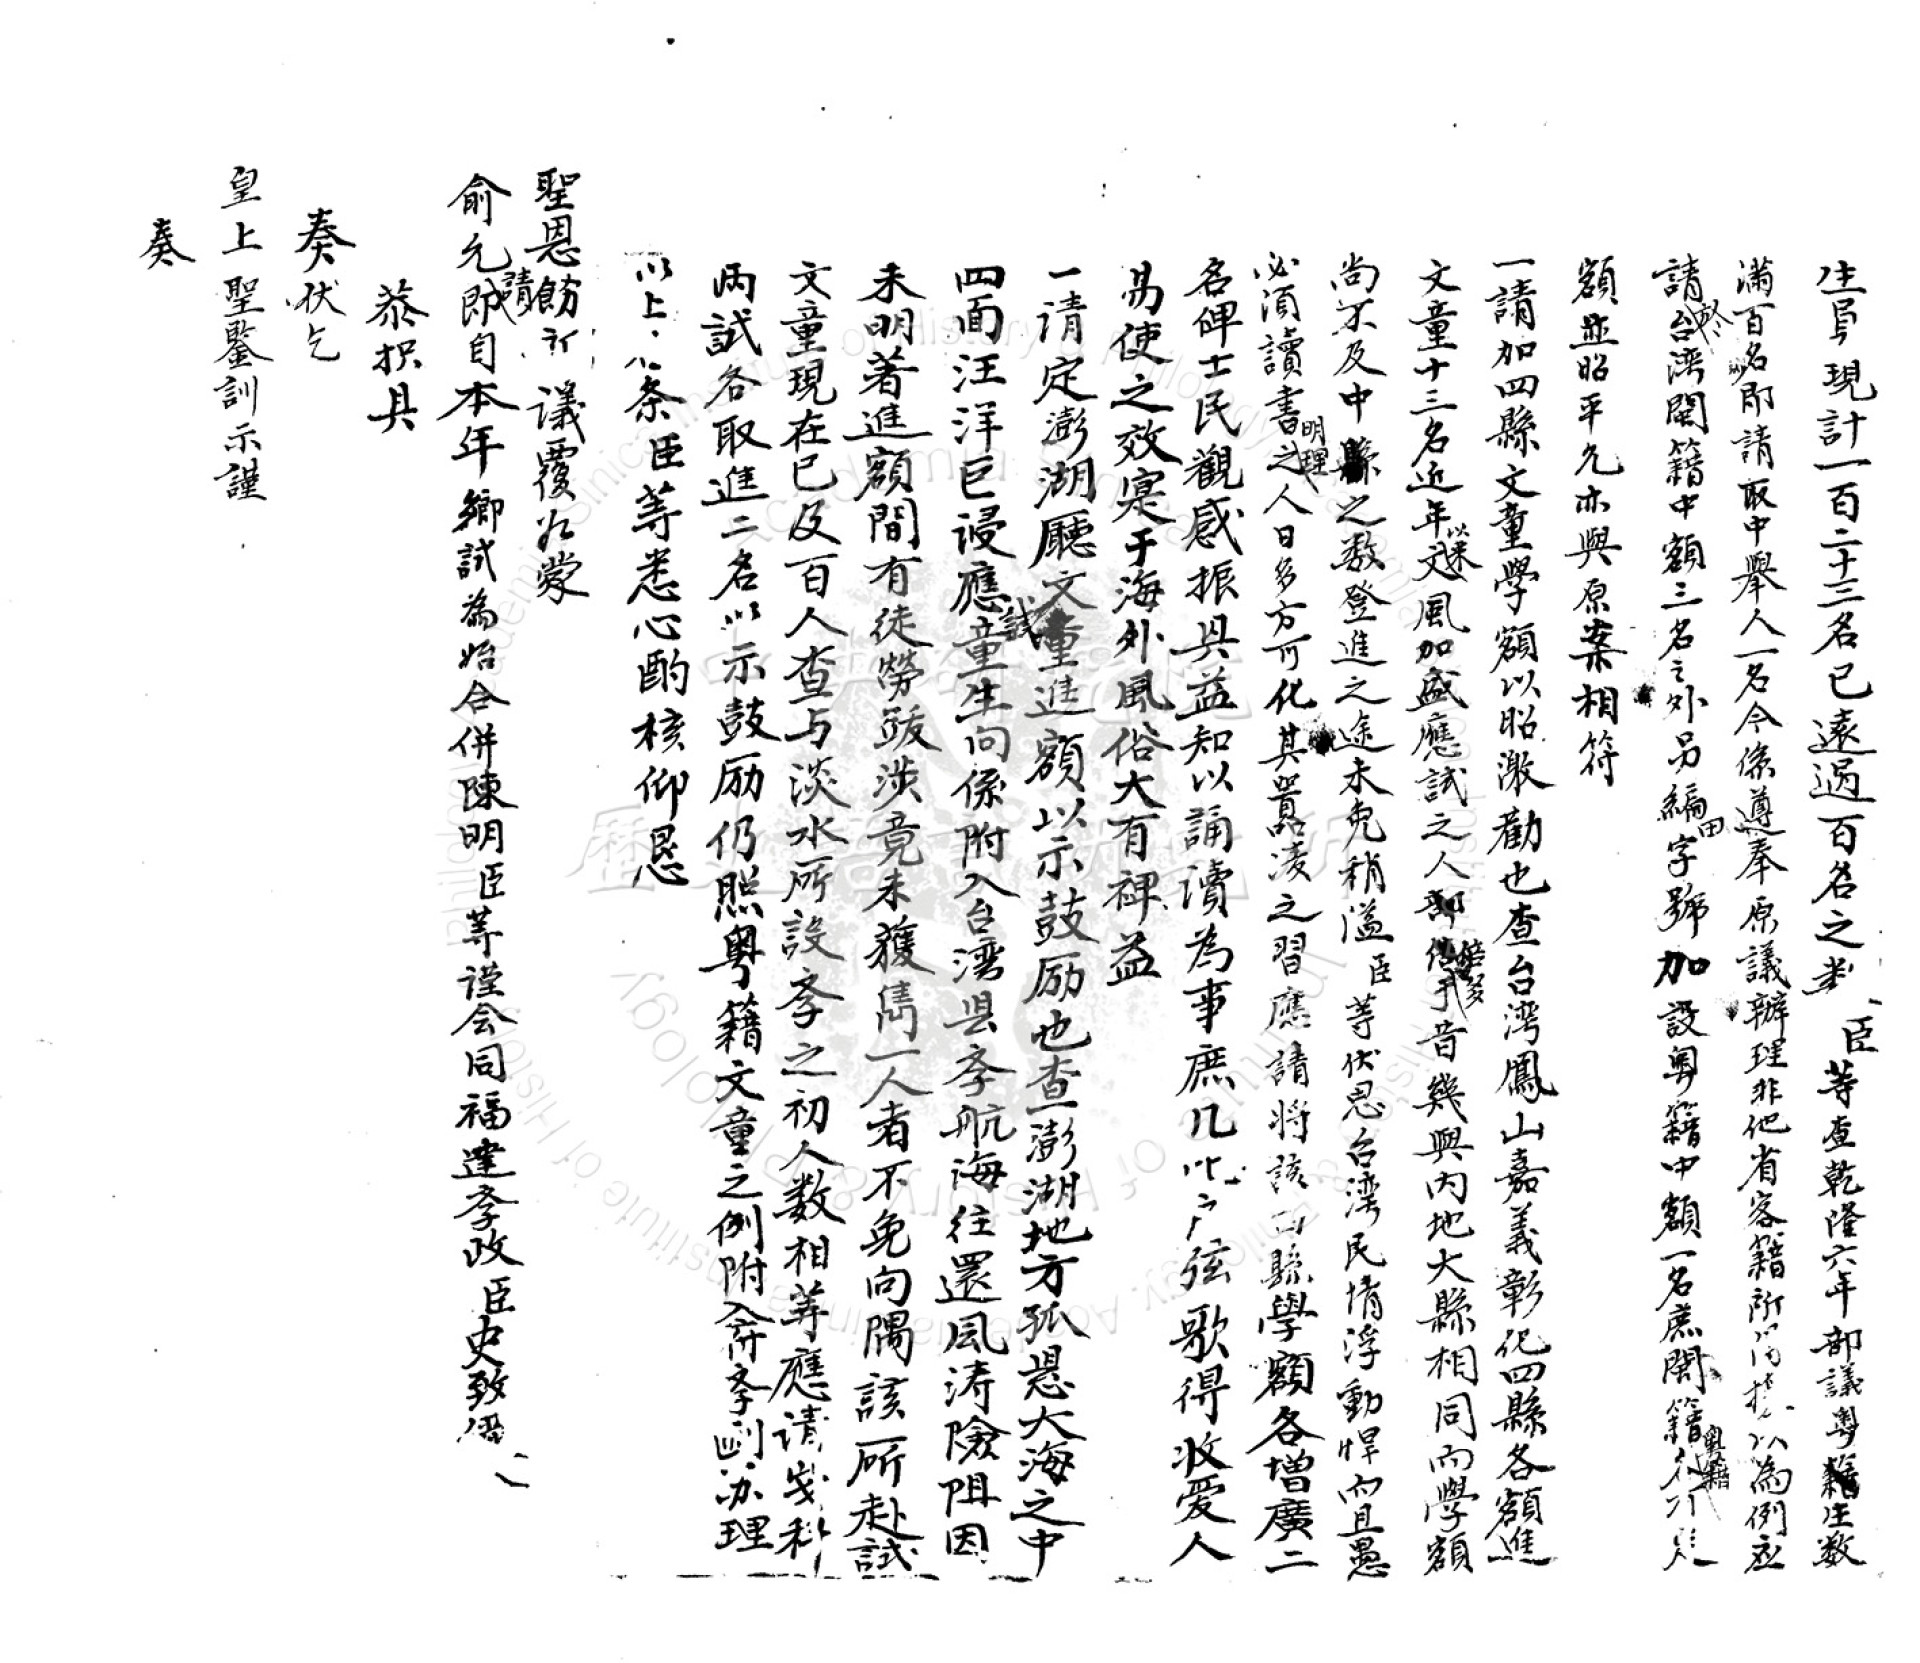 生員現計一百二十三名已遠過百名之數臣等查乾隆六年部議粵籍生數
滿百名即請取中舉人一名今係遵奉原議辦理非他省客籍所得援以為例應
請於台湾閩籍中額三名之外另編田字號加設粵籍中額一名庶閩籍粵籍
額並昭平允亦與原案相符
一請加四縣文童學額以昭激勸也查台湾鳳山嘉義彰化四縣各額進
文童十三名近年以來文風加盛應試之人倍多于昔幾與內地大縣相同而學額
尚不及中縣之数登進之途未免稍溢臣等伏思台湾民情浮動悍而且愚
必須讀書明理之人日多方可化其嚣凌之習應請將該四縣學額各增廣二
名俾士民觀感振具益知以誦讀為事庶几比户弦歌得收爱人
易使之效寔于海外風俗大有裨益
一請定澎湖廳文童進額以示鼓励也查澎湖地方孤悬大海之中
四面汪洋巨浸應試童生向係附入台湾县孝航海往還風涛險阻因
未明著進額間有徒勞跋涉竟未獲雋一人者不免向隅該所赴試
文童現在已及百人查与淡水所設孝之初人数相等應请歲科
兩試各取進二名以示鼓励仍照粤籍文童之例附入府孝㓮办理
以上八条臣等悉心酌核仰恳
聖恩飭部議覆如蒙
俞允請即自本年鄉試為始合併陳明臣等谨会同福建孝政臣史致儼
恭摺具
奏伏乞
皇上聖鑒訓示謹
奏
歷史語言研究所
Institute of History & Philology, Academia Sinica